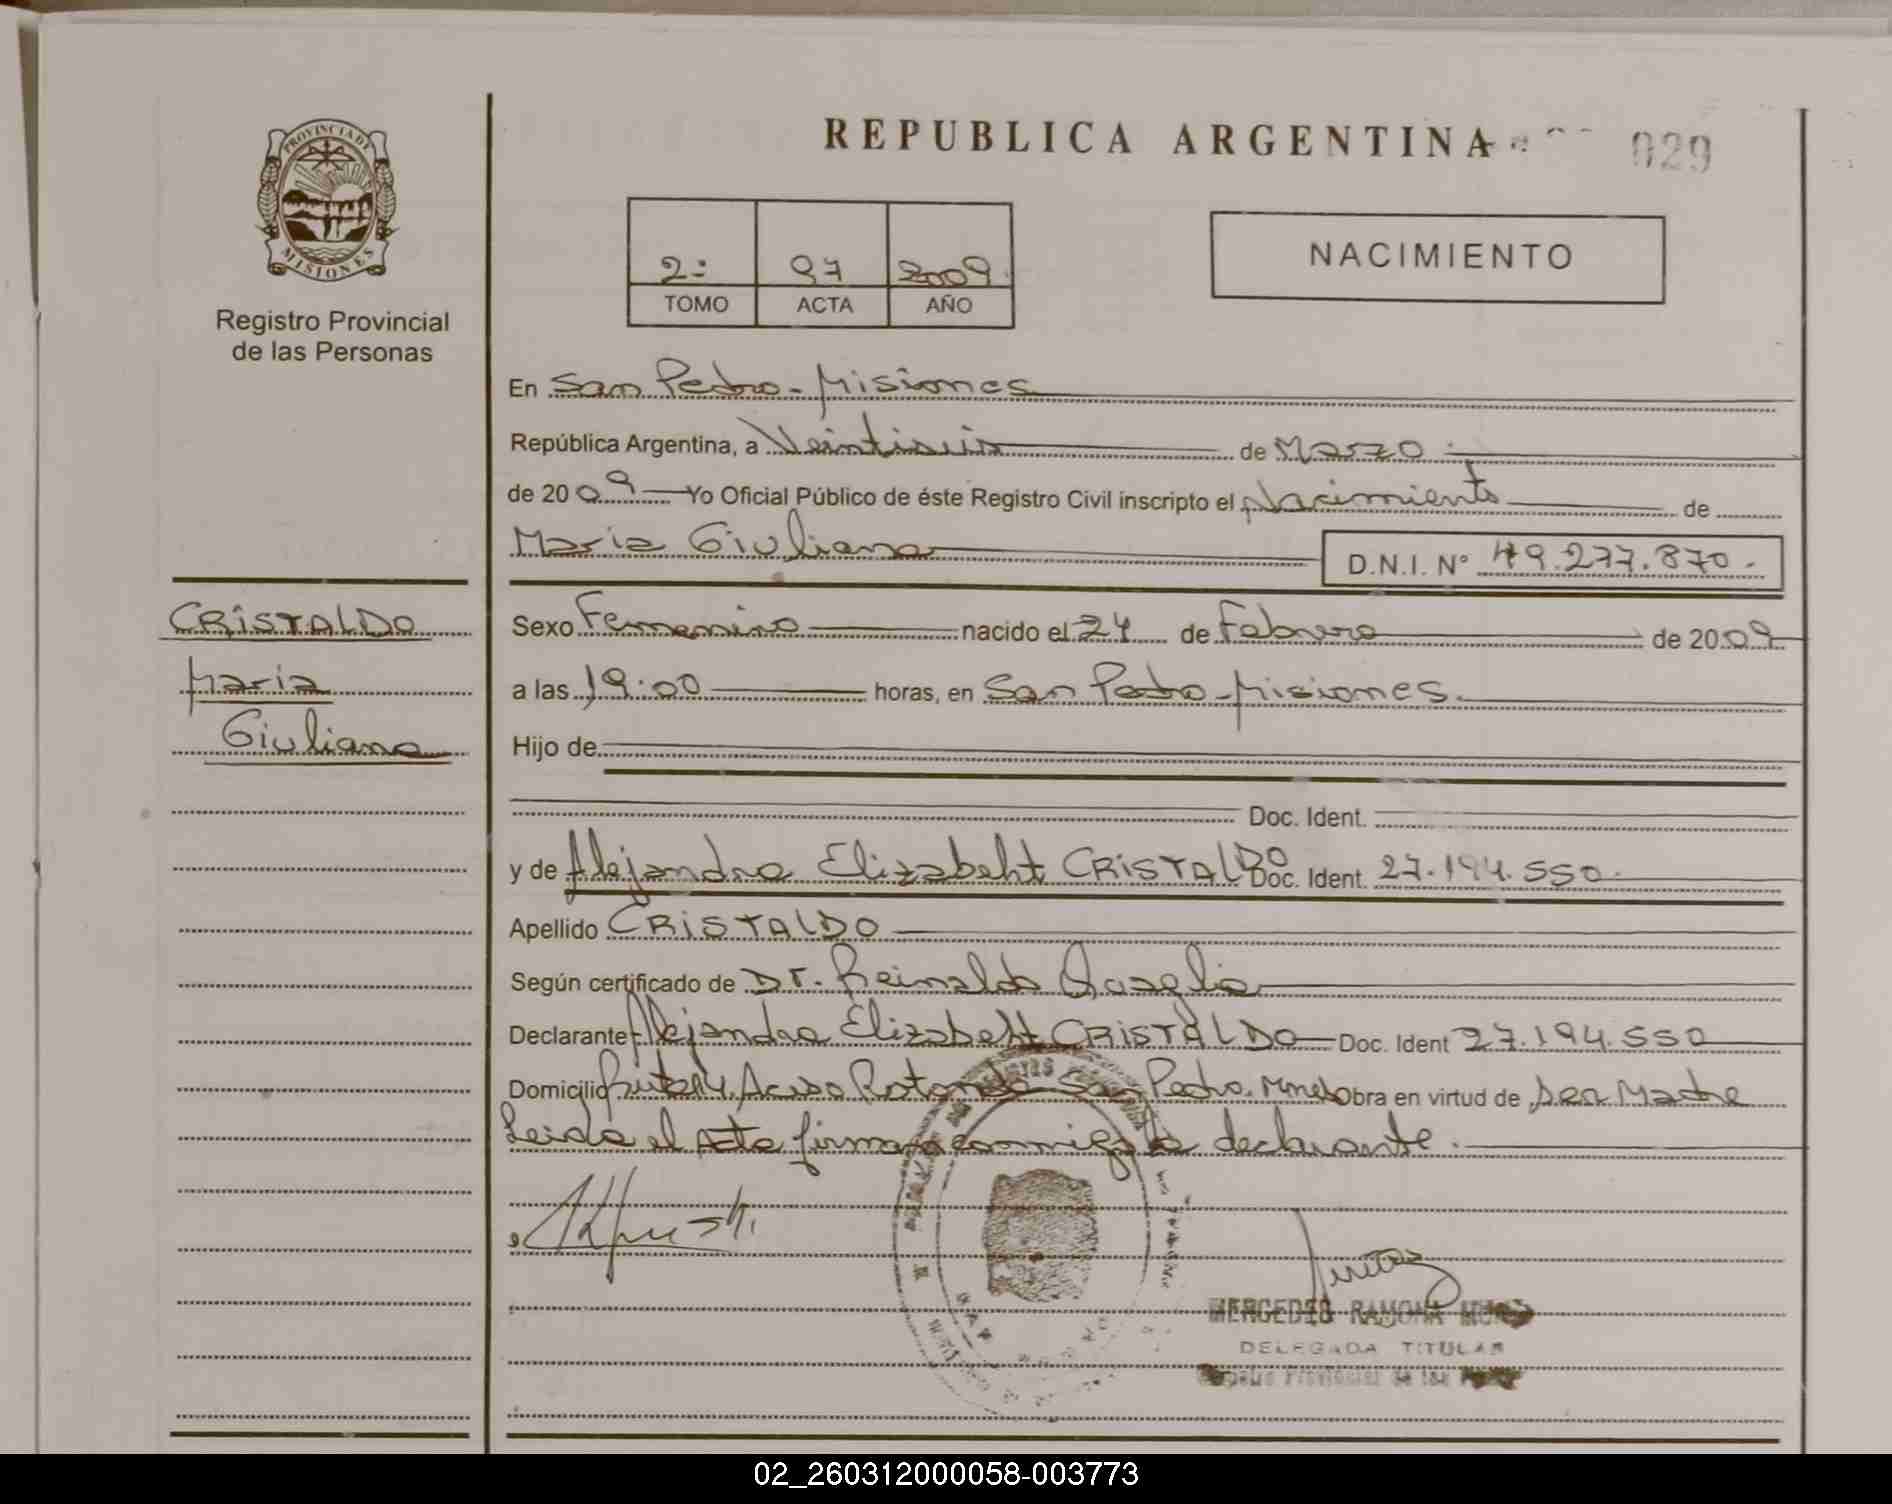 REPUBLICA ARGENTINA 029
PROVINCIA DE
MISIONES
Registro Provincial
de las Personas
2= 97 2009
TOMO ACTA AÑO
NACIMIENTO
En San Pedro - Misiones
República Argentina, a Veintiseis de Marzo
de 2009 Yo Oficial Público de éste Registro Civil inscripto el Nacimiento de
Maria Giuliana D.N.I. N° 49.277.870.
CRISTALDO
Maria
Giuliana
Sexo Femenino nacido el 24 de Febrero de 2009
a las 19:00 horas, en San Pedro - Misiones.
Hijo de
Doc. Ident.
y de Alejandra Elizabeht CRISTALDO Doc. Ident. 27.194.550.
Apellido CRISTALDO
Según certificado de Dr. Reinaldo
Declarante Alejandra Elizabeht CRISTALDO Doc. Ident 27.194.550
Domicilio Ruta 14 Acceso Rotonda San Pedro. Mnes Obra en virtud de ser Madre
Leida el Acta firma conmigo la declarante.
MERCEDES RAMONA
DELEGADA TITULAR
Provincial de las
02_260312000058-003773